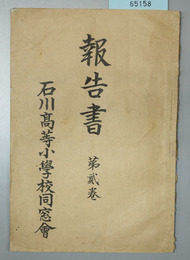 65158
報告書
第貳巻
石川高等小學校同窓會